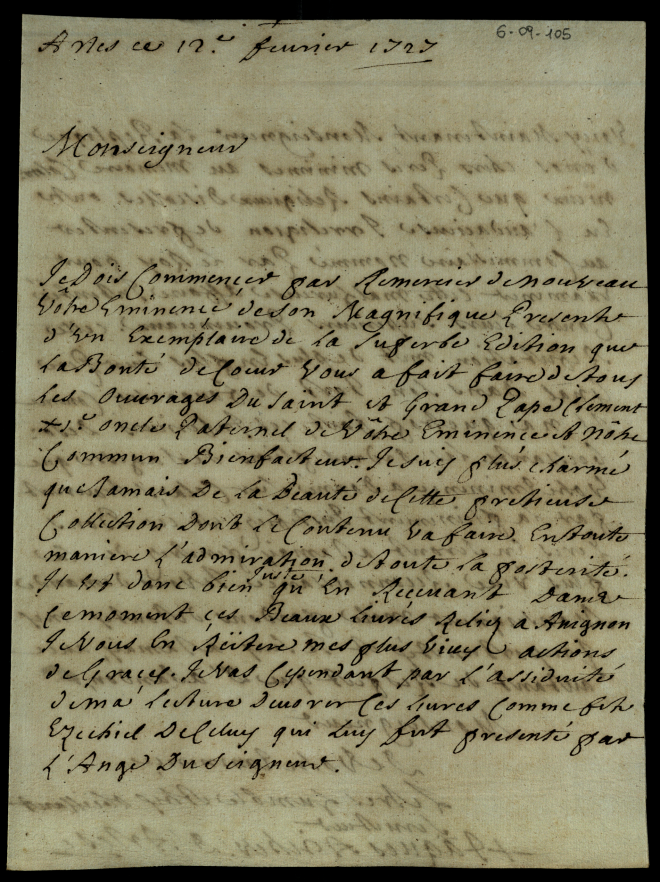 6-09-105
Arles ce 12.e feurier 1727
Monseigneur
Je Dois Commencer par Remercier de nouveau
Vôtre Eminence de son Magnifique Presente
d'Vn Exemplaire de la superbe Edition que
La Bonté de Coeur Vous a fait faire de tous
Les Ouurages Du saint et Grand Pape Clement
xi.e oncle Paternel de Vôtre Eminence et nôtre
Commun Bienfacteur. Je suis plus charmé
que Jamais De la Beauté de Cette pretieuse
Collection Dont le Contenu Va faire En toute
maniere L'admiration de toute la posterité.
Il Est donc bien juste qu'En Receuant Dans
ce moment ces Beaux Liures Reliez a Auignon
Je Vous En Réitere mes plus Viues actions
de Graces. Je Vas Cependant par L'assiduité
de ma Lecture Deuorer Ces liures Comme fit
Ezechiel De Celuy qui Luy fut presenté par
L'Ange Du seigneur.